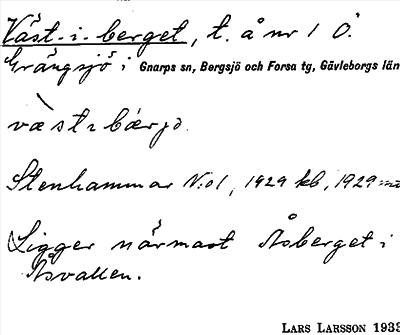 Väst-i-berget, t. å nr 1 Ö.
Grängsjö i Gnarps sn, Bergsjö och Forsa tg, Gävleborgs län
Stenhammar N:o1, 1929 kb, 1929
Ligger närmast Åsberget i
Åsvallen.
LARS LARSSON 1933